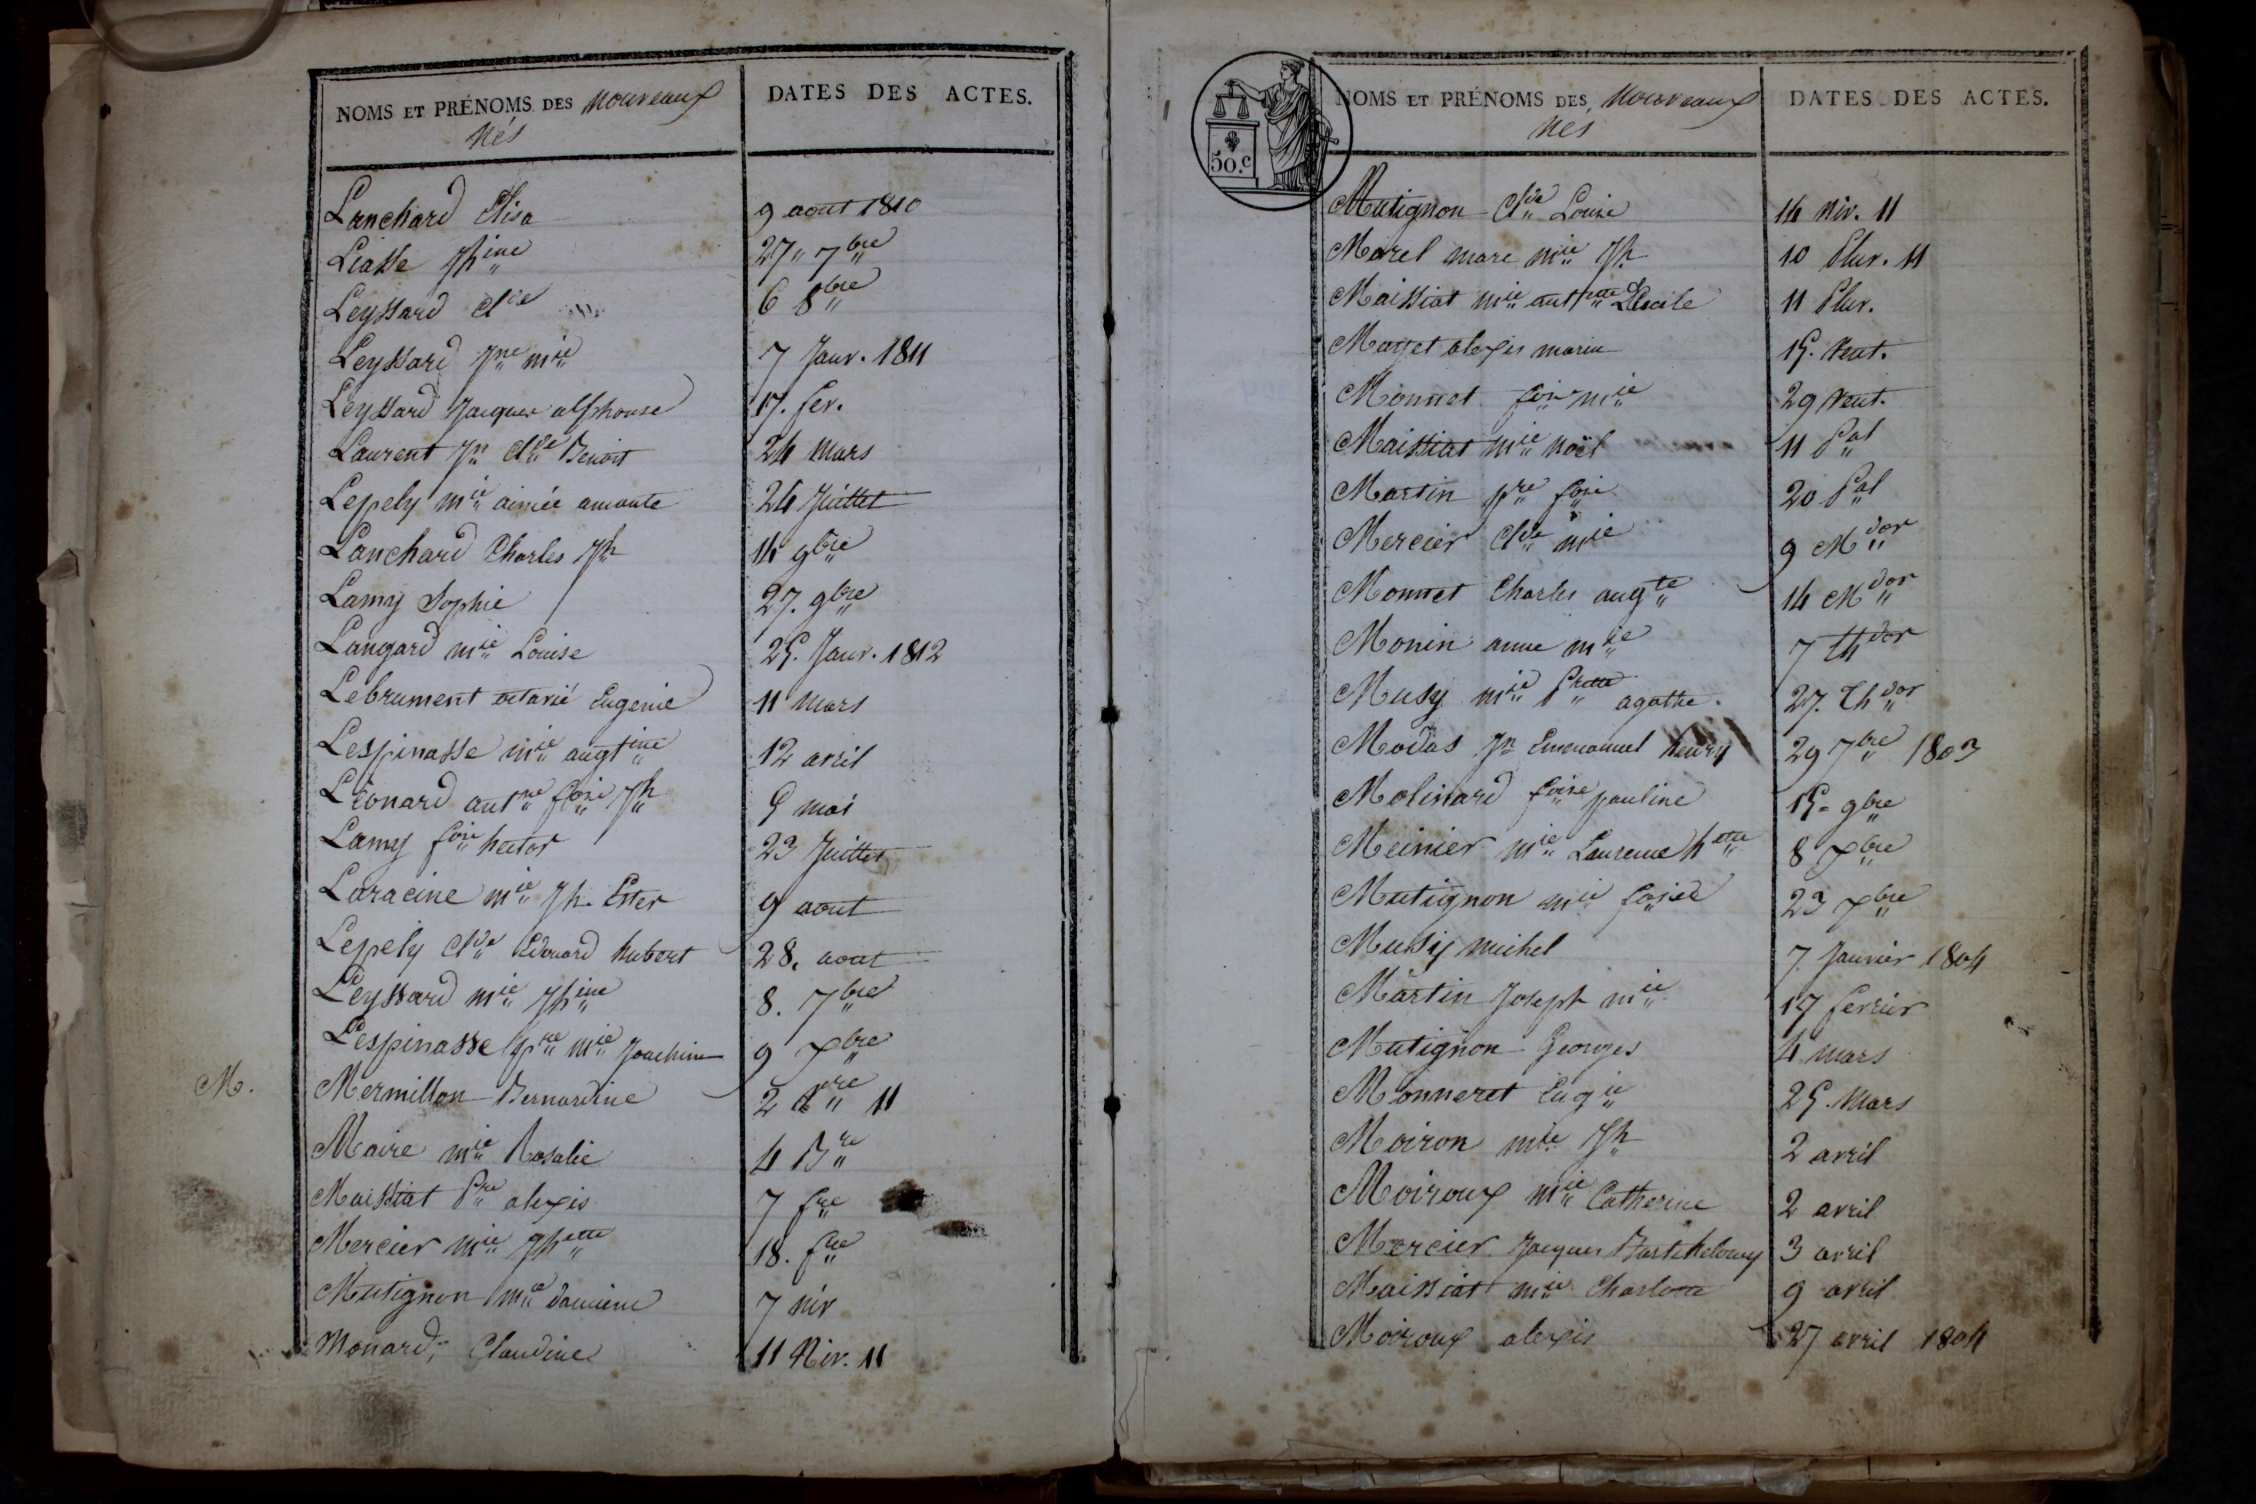 NOMS ET PRÉNOMS DES nouveaux
nés
DATES DES ACTES.
Lanchard Elisa 9 aout 1810
Liasse Jhine 27 7bre
Leyssard Cl.de 6 8bre
Leyssard Jne mie 7 Janv. 1811
Leyssard Jacques alphonse 17. fev.
Laurent Jn Clde Benoit 24 mars
Lepely mie aimée amante 24 Juillet
Lanchard Charles Jh 14 9bre
Lamy Sophie 27. 9bre
Langard mie Louise 25. Janv. 1812
Lebrument octavie Eugenie 11 mars
Lespinasse mie augtine 12 avril
Léonard antne fois Jh 5 mai
Lamy fois hector 23 Juillet
Laracine mie Jh. Ester 9 aout
Lepely Clde Edouard hubert 28. aout
Leyssard mie Jhine 8. 7bre
Lespinasse pre mie Joachim 9 Xbre
M.
Mermillon Bernardine 2 Bre 11
Maire mie Rosalie 4 Bre
Maissiat Pre alexis 7 fre
Mercier mie Jhette 18. fre
Mutignon mie 7 niv
Monard, Claudine 11 Niv. 11
50.c
NOMS ET PRÉNOMS DES nouveaux
nés
DATES DES ACTES.
Mutignon Clde Louise 14 niv. 11
Morel marc mie Jh 10 Pluv. 11
Maissiat mie anttte Cécile 11 Pluv.
Mayet alexis marin 15. Vent.
Monnet fois mie 29 Vent.
Maissiat mie noël 11 Pal
Martin pre fois 20 Pal
Mercier Clde mie 9 Mdor
Monnet Charles augte 14 Mdor
Monin anne mie 7 thdor
Musy mie Prette agathe. 27. Thdor
Modas Jn Emmanuel henry 29 7bre 1803
Molinard foise pauline 15. 9bre
Meinier mie Laurence hette 8 Xbre
Mutignon mie foise 23 Xbre
Musy michel 7. Janvier 1804
Martin Joseph mie 17 fevrier
Mutignon Georges 4 mars
Monneret Eugie 25. Mars
Moiron mie Jh 2 avril
Moiroux mie Catherine 2 avril
Mercier Jacques Barthelemy 3 avril
Maissiat mie Charlotte 9 avril
Moiroux alexis 27 avril 1804